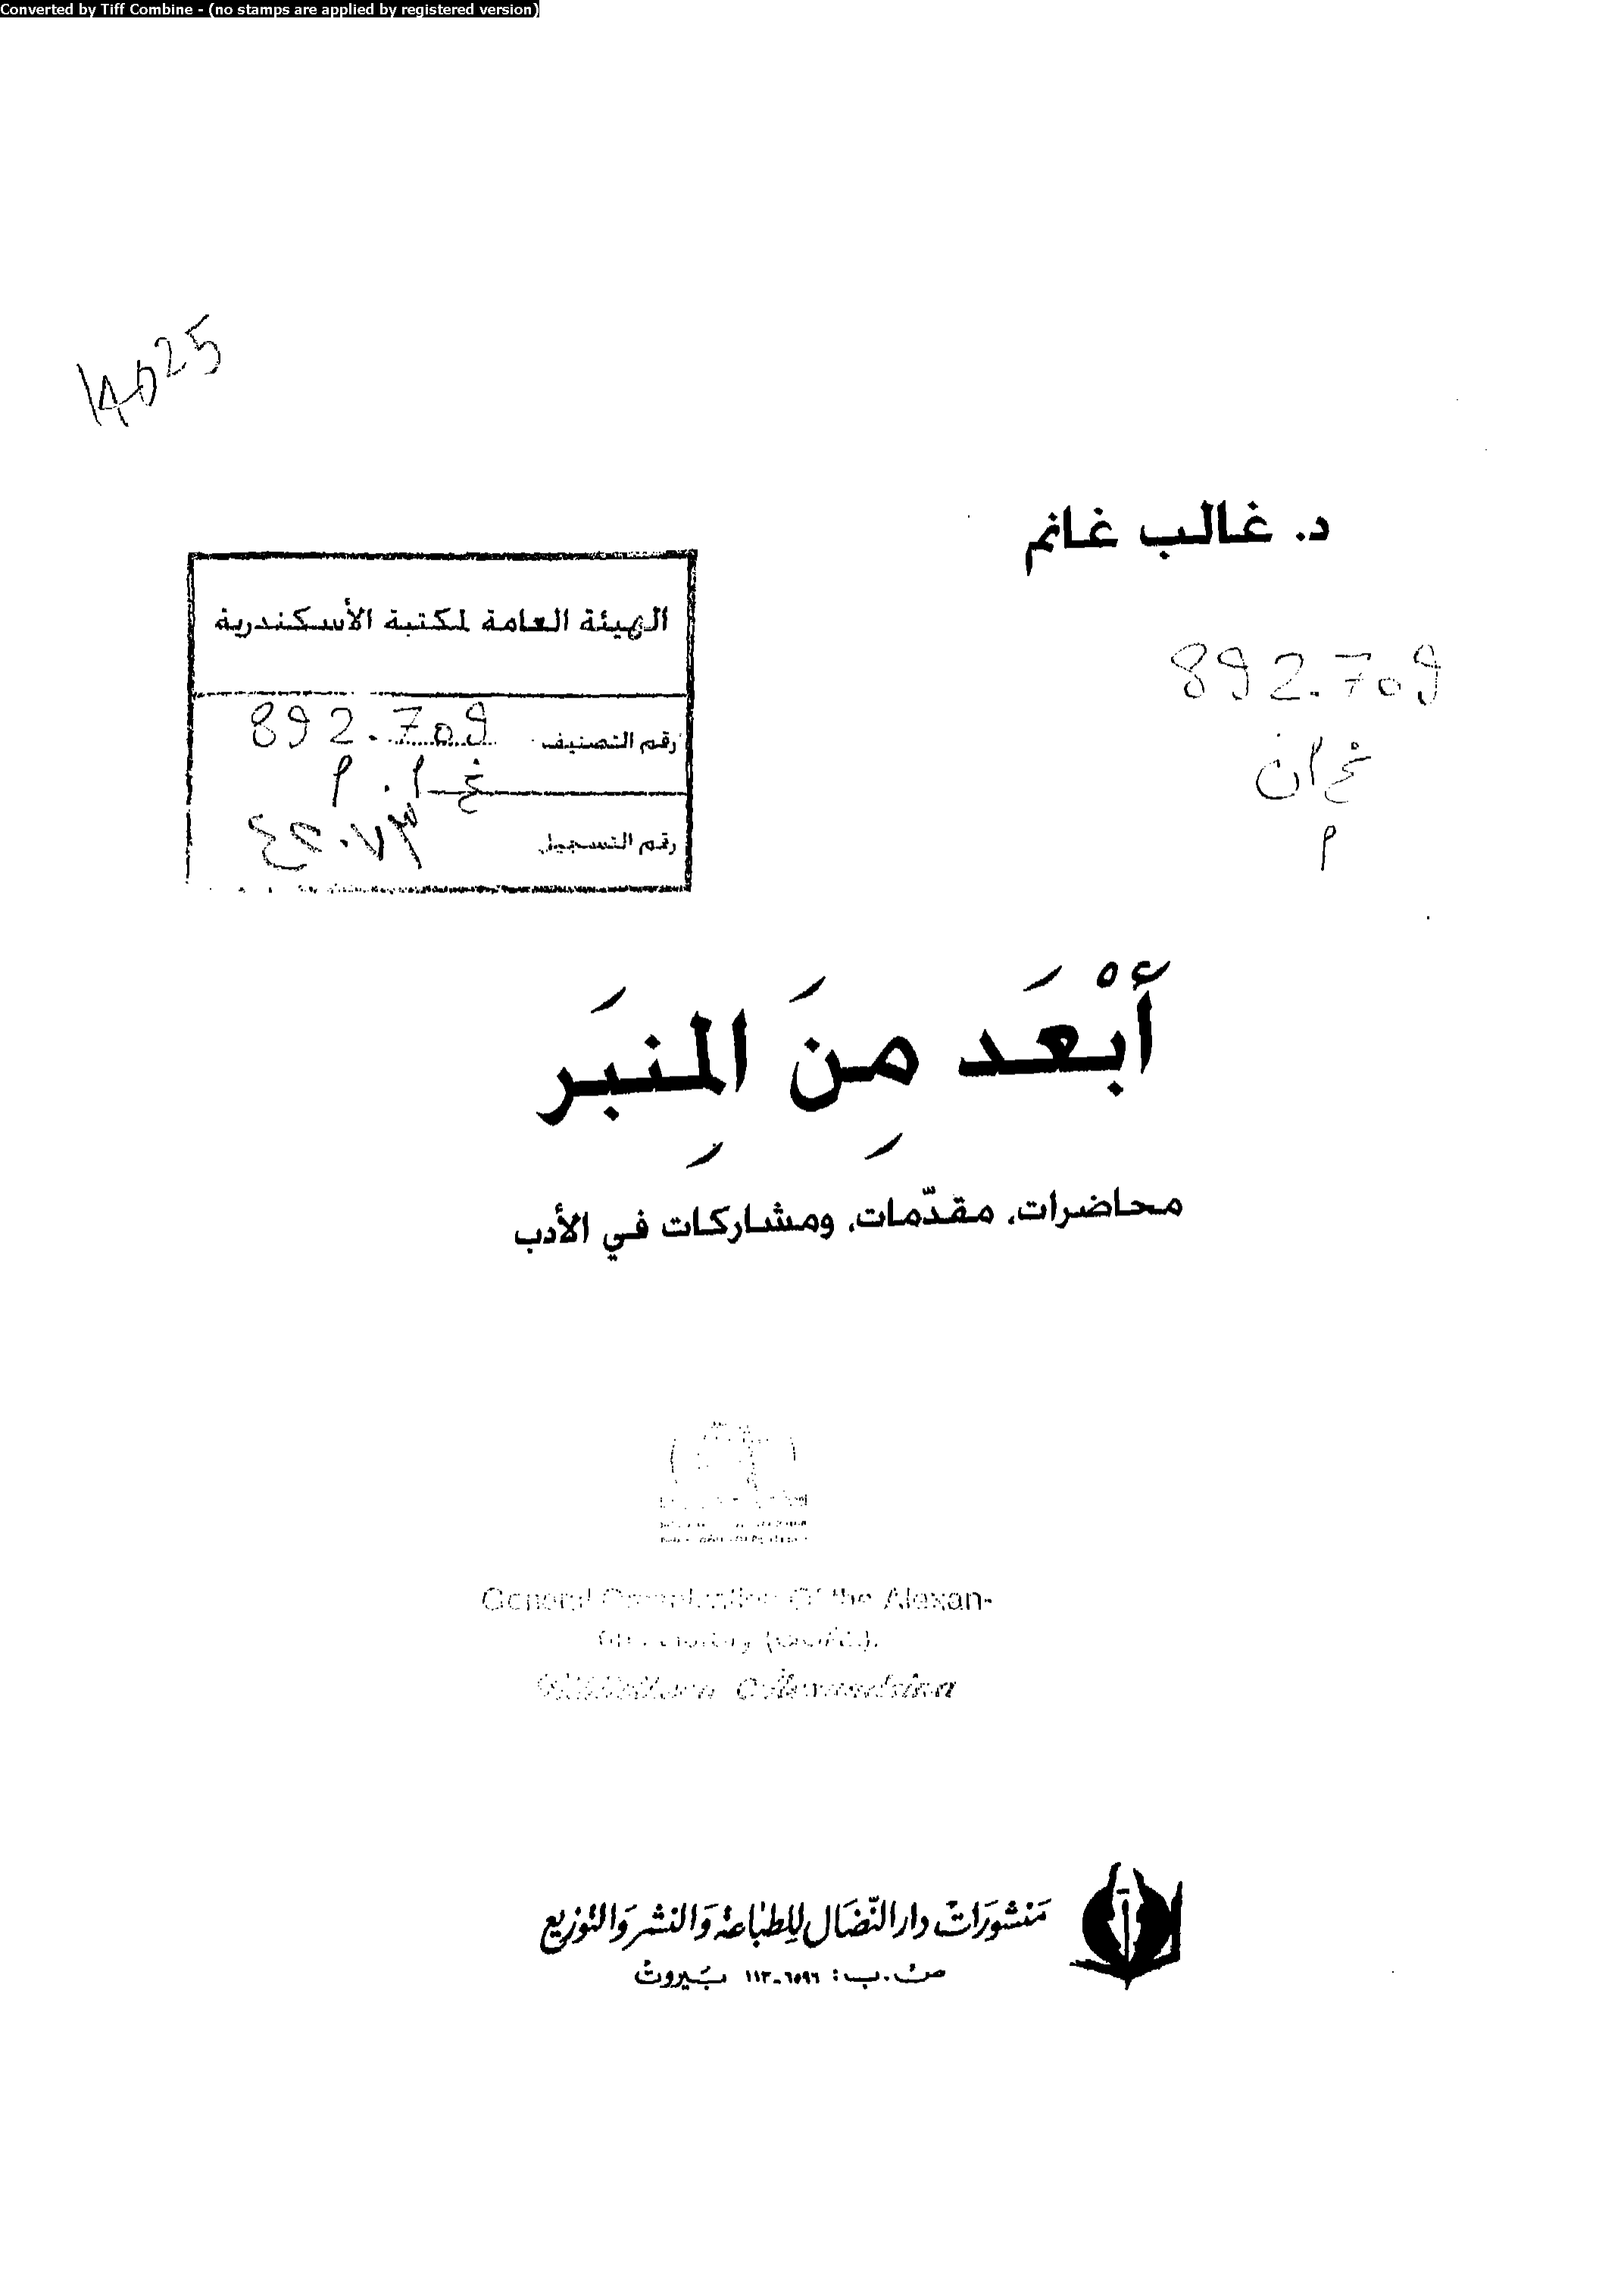 Converted by Tiff Combine - (no stamps are applied by registered version)
14025
د. غالب غانم
الهيئة العامة لمكتبة الأسكندرية
رقم التصنيف 892.709
غ ا . م
رقم التسجيل
892.709
غ ان
م
أبْعَد مِنَ المِنبَر
محاضرات، مقدّمات، ومشاركات في الأدب
General Organization Of the Alexan-
Bibliotheca Alexandrina
مَنشورَات دار النّضَال للِطبَاعة وَالنشر وَالتوزيع
ص.ب: ٦٥٩٦-١١٣ بَيروت